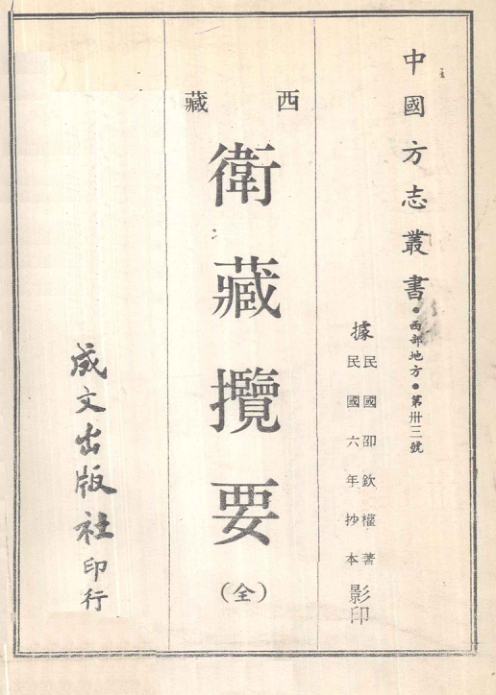 中國方志叢書•西部地方•第卅三號
據民國邵欽權著民國六年抄本影印
西藏
衛藏攬要
(全)
成文出版社印行